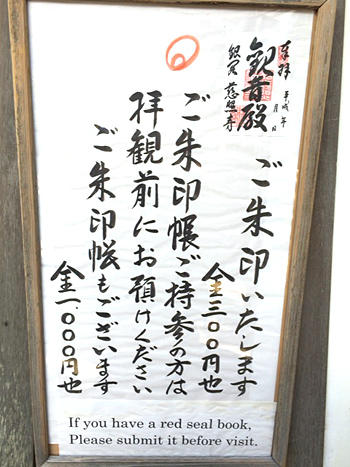 奉拝
平成 年
月 日
観音殿
銀閣 慈照寺
ご朱印いたします
金三〇〇円也
ご朱印帳ご持参の方は
拝観前にお預けください
ご朱印帳もございます
金一、〇〇〇円也
If you have a red seal book,
Please submit it before visit.